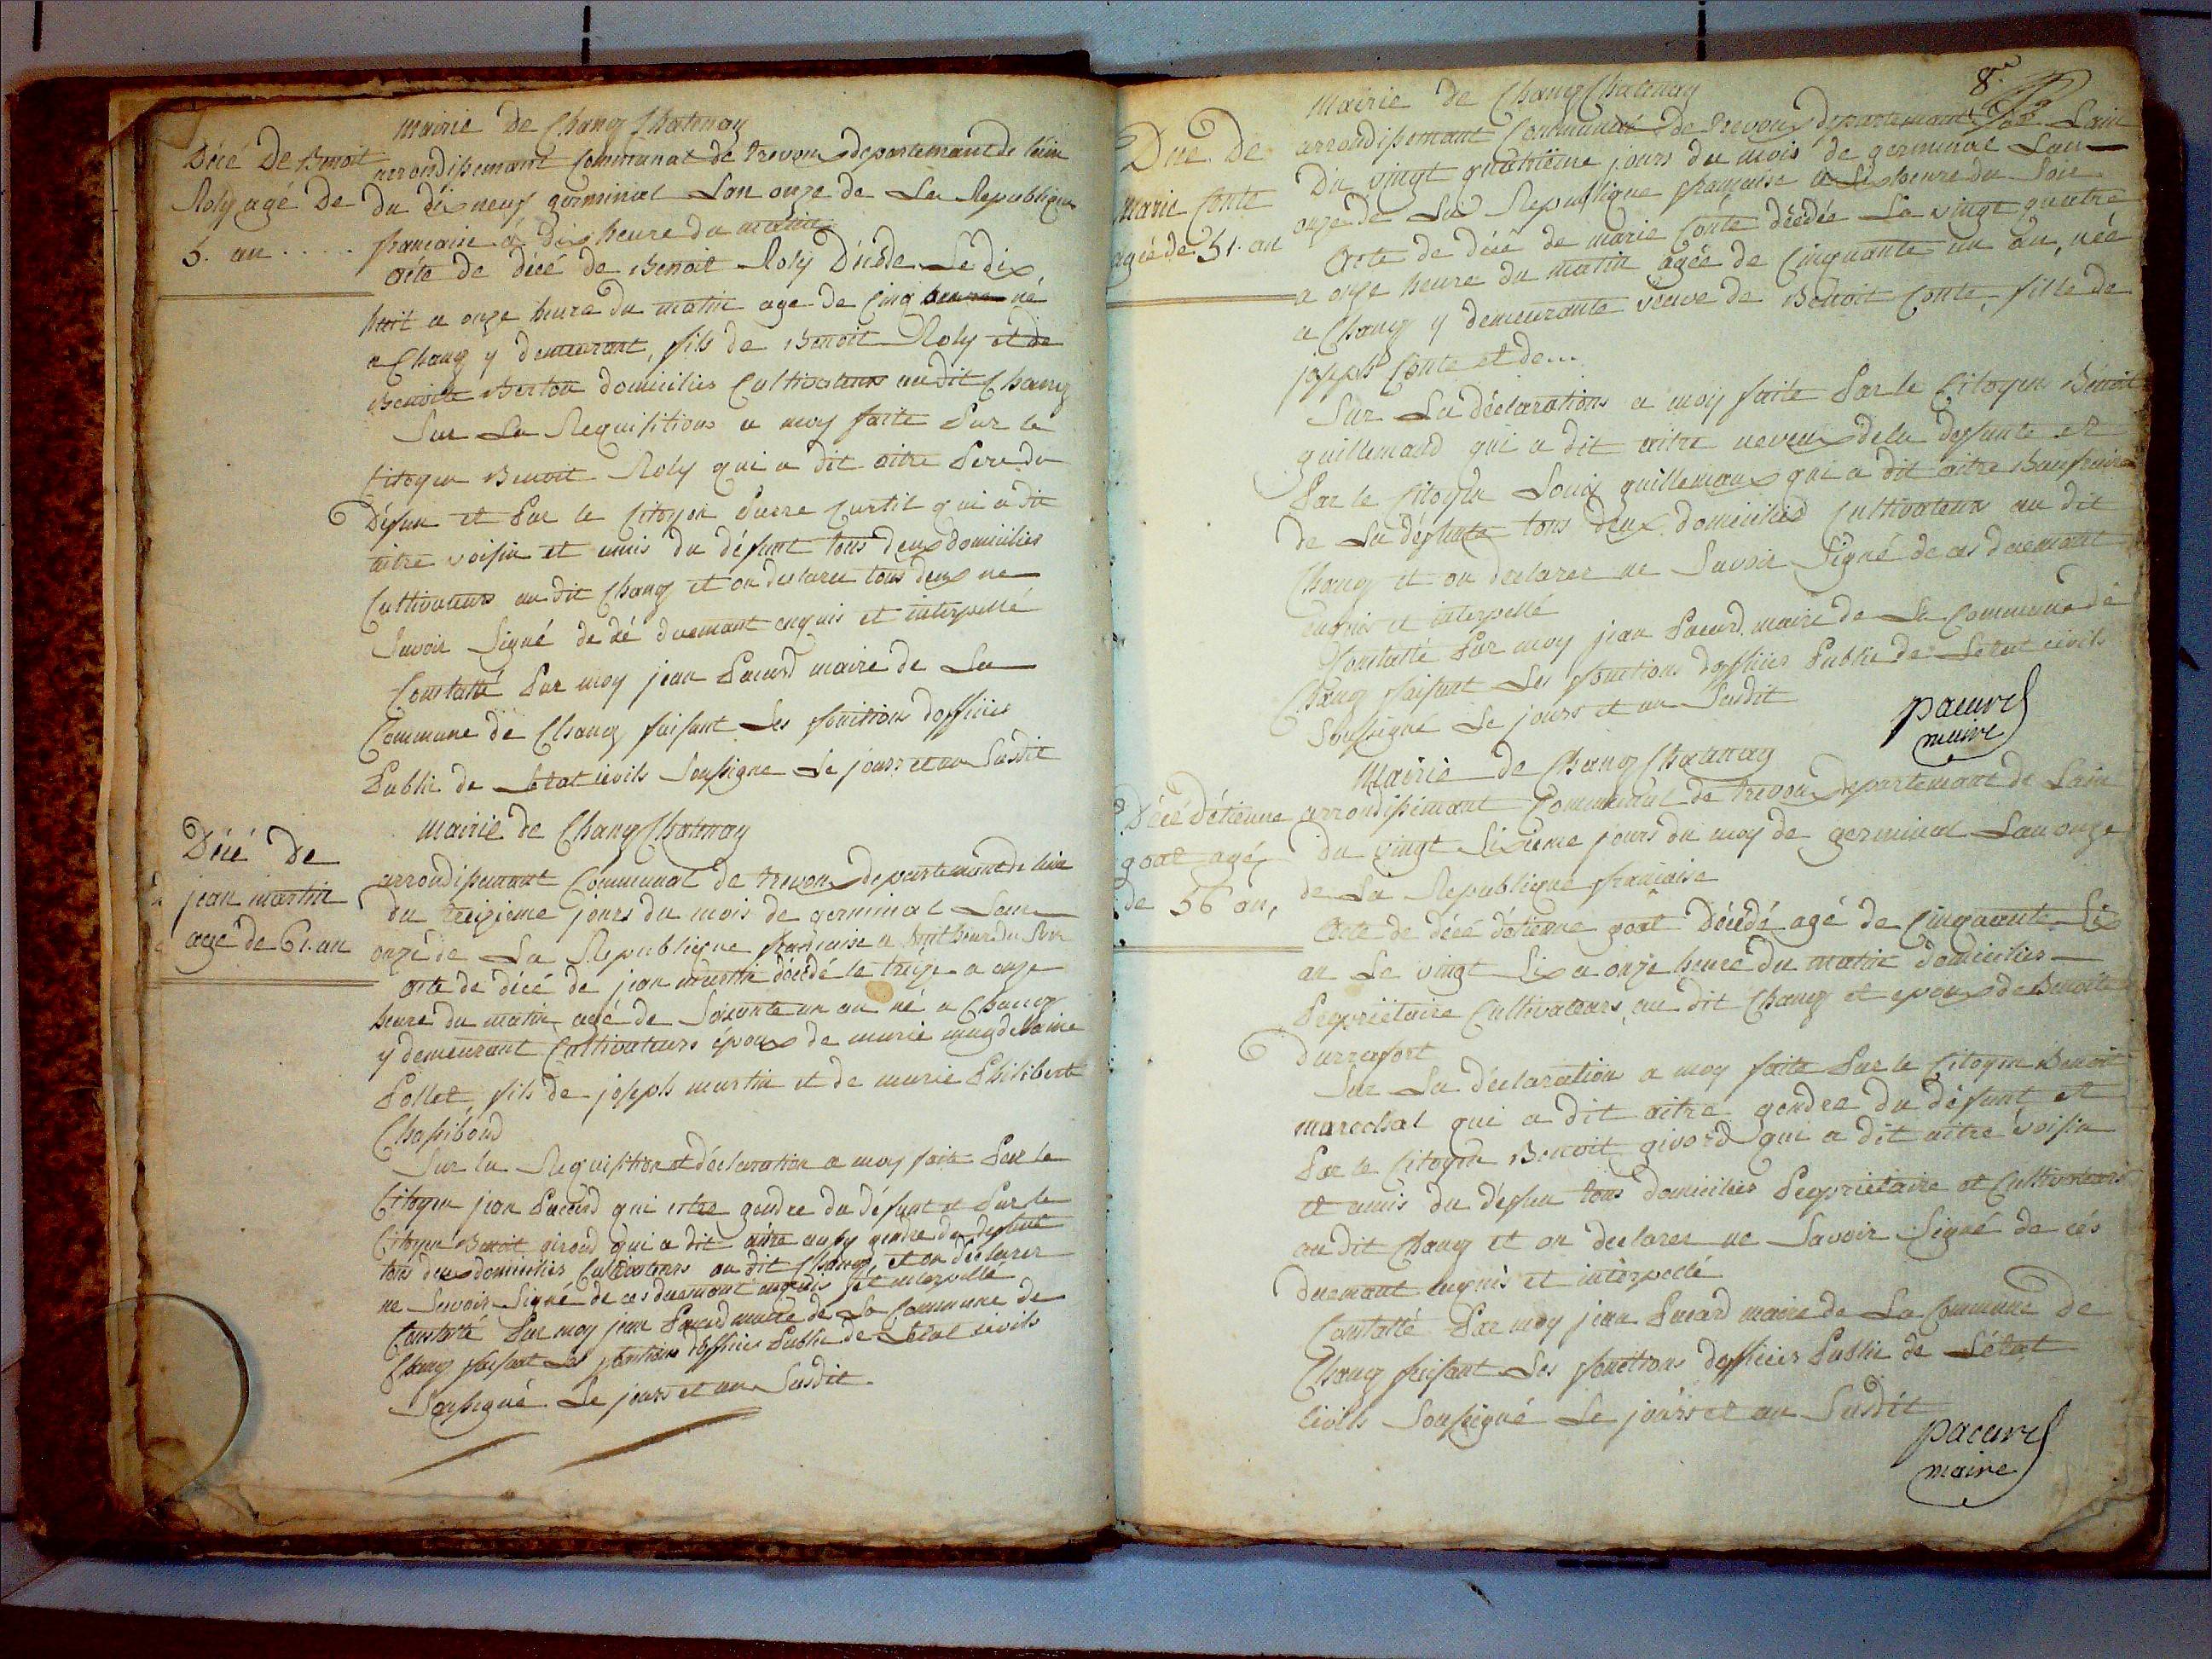 mairie de Chaneg Chatenay
Décé De Benoit
Roly agé De
5. an . . . . .
arrondissemant Communal de trevoux departemant de lain
du dix neuf germinal Lan onze de La Republique
francaise à dix heure du matin
acte de décé de Benoit Roly Décédé Le dix
huit a onze heure du matin age de Cinq né
a Chaneg y demeurant, fils de Benoit Roly et de
Benoite Berlon domicilies Cultivateurs au dit Chaneg
Sur La Requisitions a moy faite Par le
Citoyen Benoit Roly qui a dit aitre Pere du
Défun et Par le Citoyen Pierre Curtil qui a dit
aitre voisin et amis du défunt tous deux domicilies
Cultivateurs au dit Chaneg et on declaree tous deux ne
Savoir Signé de dé duemant enquis et interpellé
Constatté Par moy jean Pacard maire de La
Commune de Chaneg faisant Les fonctions dofficier
Public de Letat civils Soussigne Le jours et an Susdit
mairie de Chaneg Chatenay
Décé de
jean martin
age de 61. an
arrondissemant Communal de trevoux departemant de lain
du treizieme jours du mois de germinal Lan
onze de La Republique francaise a huit heure du Soir
acte de décé de jean martin décédé le treize a onze
heure du matin agé de Soixante un an né a Chaneg
y demeurant Cultivateurs époux de marie magdelaine
Pollet, fils de joseph martin et de marie Philiberte
Chassiboud
Sur la Requisition et déclaration a moy faite Par le
Citoyen jean Pacard qui etre gendre du défunt et Par le
Citoyen Benoit giroud qui a dit aitre aussy gendre du defunt
tous deux domicilies Cultivateurs au dit Chaneg, et on déclarer
ne Savoir Signé de ces duemant enquis et interpellé
Constatté Par moy jean Pacard maire de La Commune de
Chaneg faisant Les fonctions dofficier Public de Letat civils
Soussigné Le jours et an Susdit
8.e
mairie de Chaneg Chatenay
Décé De
marie Conte
agée de 51. an
arrondissemant Communal de trevoux departemant de Lain
Du vingt quatrième jours du mois de germinal Lan
onze de La Republique française a Six heure du Soir
acte de décé de marie Conte décédée Le vingt quatre
a onze heure du matin agée de Cinquante un an, née
a Chaneg y demeurante veuve de Benoit Conte, fille de
joseph Conte et de...
Sur La déclarations a moy faite Par le Citoyen Benoit
guillemaud qui a dit aitre neveux de la defunte et
Par le Citoyen Louis guillemaux qui a dit aitre Beaufraire
de La défunte tous deux domicilies Cultivateurs au dit
Chaneg et on declarer ne Savoir Signé de ces duemant
enquis et interpellé
Constatté Par moy jean Pacard maire de La Commune de
Chaneg faisant Les fonctions dofficier Public de Letat civils
Soussigné Le jours et an Susdit
pacard
maire
Mairie de Chaneg Chatenay
Décé détienne
goat agé
de 56 an,
arrondissimant Communal de trevoux departemant de Lain
Du vingt Sixieme jours du moy de germinal Lan onze
de La Republique française
acte de décé détienne goat Décédé agé de Cinquante Six
an Le vingt Six a onze heure du matin domicilies
Propriétaire Cultivateurs au dit Chaneg et epoux de Benoite
Durrafort
Sur La déclaration a moy faite Par le Citoyen Benoit
marechal qui a dit aitre gendre du défunt et
Par le Citoyen Benoit givord qui a dit aitre voisin
et amis du défun tous domicilies Proprietaire et Cultivateurs
au dit Chaneg et on declarer ne Savoir Signé de cés
duemant enquis et intérpellé
Constatté Par moy jean Pacard maire de La Commune de
Chaneg faisant Les fonctions dofficier Public de Létat
civils Soussigné Le jours et an Susdit
pacard
maire